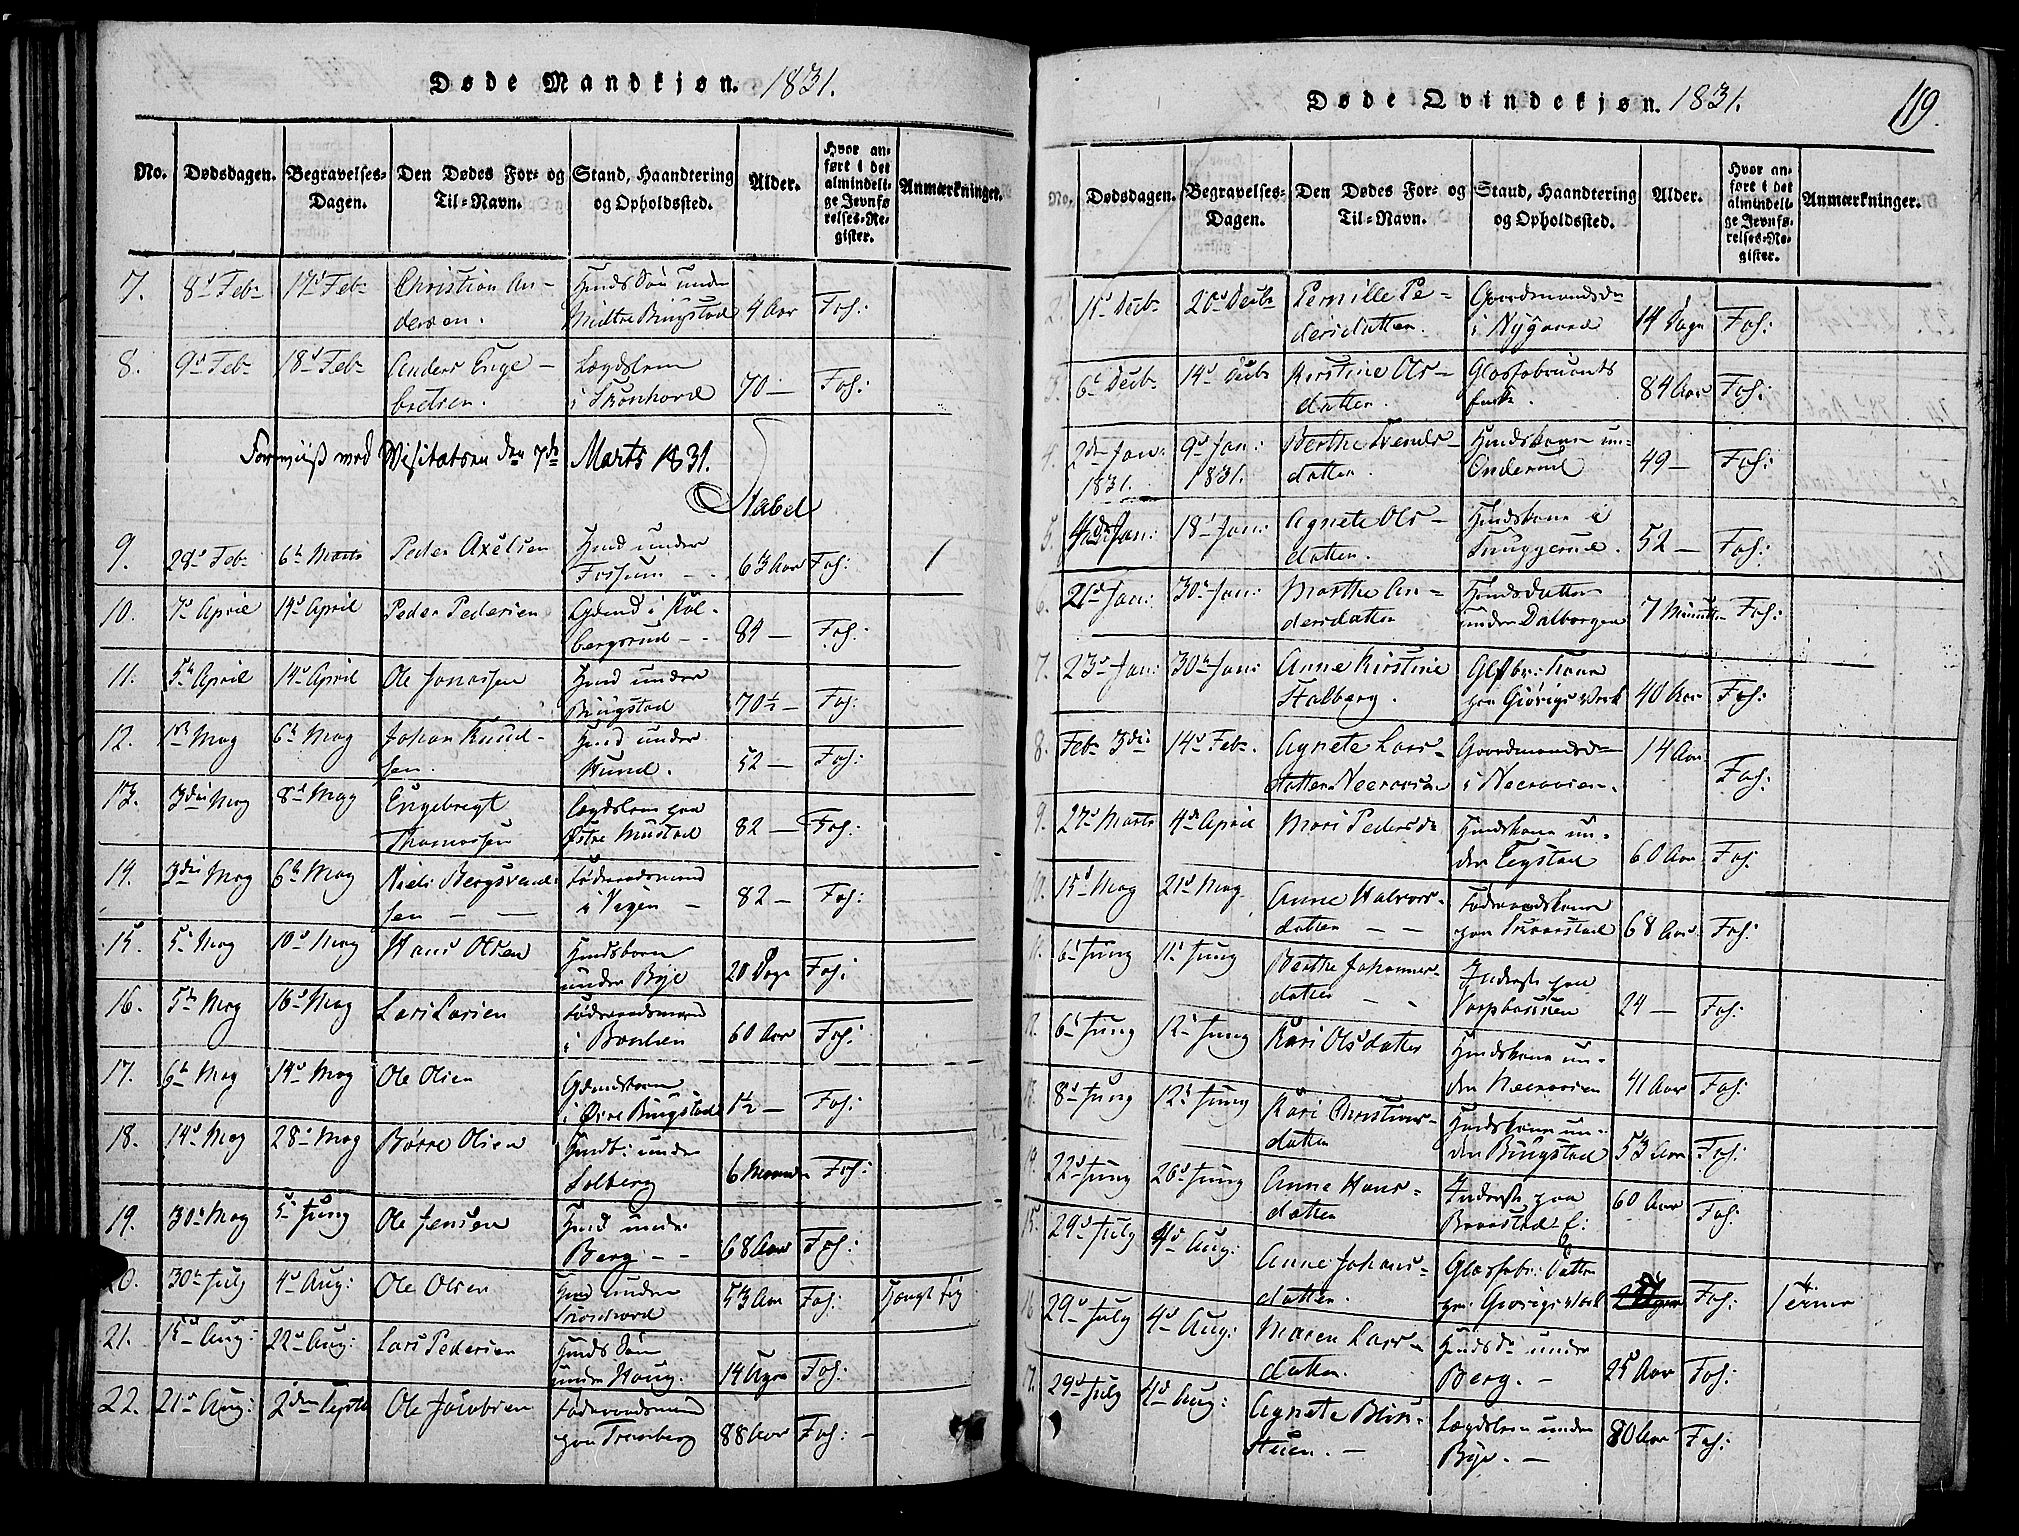 Døde Mandkjøn. 1831.
No. Dødsdagen. Begravelses-Dagen. Den Dødes For- og Til-Navn. Stand, Haandtering og Opholdssted. Alder. Hvor anført i det almindelige Jevnførelses-Register. Anmærkninger.
7. 8d Febr 14d Febr Christian Andersen. Huusm. Søn under Midtre Bingstad 4 Aar Foh:
8. 9d Febr 18d Febr Anders Engebretsen. Lægdslem i 70 — Foh:
Foreviist ved Visitatsen den 7de Marts 1831.
Stabel
9. 28d Feb 6te Marts Peder Axelsen Huusmd under Fossum — 63 Aar Foh:
10. 7d April 14d April Peder Pedersen Gdmd i Kolbergsrud — 84 — Foh:
11. 5te April 14d April Ole Jonassen Huusmd under Bingstad 70½ — Foh:
12. 1ste May 6te May Johan Knudsen. Huusmd under Hund. 52 — Foh:
13. 3die May 8d May Engebregt Thomassen Lægdslem paa Østre Mustad 82 — Foh:
14. 3die May 6te May Niels Bergsvendsen — Føderaadsmand i — 82 — Foh:
15. 5 May 10d May Hans Olsen Huusmdsbarn under Bye 20 Dage Foh:
16. 5te May 16d May Lars Larsen Føderaadsmand i 60 Aar Foh:
17. 6te May 14d May Ole Olsen Gdmdsbarn i Øvre Bingstad 1½ — Foh:
18. 14d May 28d May Børre Olsen under Solberg 6 Maaned Foh:
19. 30d May 5 Juny Ole Jensen Huusmd under Berg — 68 Aar Foh:
20. 30te July 4d Aug: Ole Olsen Huusmd under 53 Aar Foh: hængt sig
21. 15d Aug: 22d Aug: Lars Pedersen Huusmds Søn under Haug. 14 Foh:
22. 21d Aug: 2den Septb Ole Jacobsen Føderaadsmand paa Tranberg 88 Aar Foh: —
Døde Qvindekjøn. 1831. 119.
No. Dødsdagen. Begravelses-Dagen. Den Dødes For- og Til-Navn. Stand, Haandtering og Opholdssted. Alder. Hvor anført i det almindelige Jevnførelses-Register. Anmærkninger.
2. 15d Decbr 20d Decbr Pernille Pedersdatter. Gaardmandsdr i Nygaard 14 Dage Foh:
3. 6te Decbr 14d Decbr Kirstine Olsdatter. 84 Aar Foh:
4. 2den Jan: 1831. 9d Jan: 1831. Berthe datter. Huusmdskone under 49 — Foh:
5. Jan: 18d Jan: Agnete Olsdatter. Huusmdskone i 52 — Foh:
6. 21d Jan: 30te Jan: Marthe Andersdatter Huusmdsdatter under Dalborgen 7 Minutter Foh:
7. 23d Jan: 30te Jan: Anne Kirstine Stalberg. Glasbr: kone paa Giøvigs Værk 40 Aar Foh:
8. Feb 3die 14d Feb. Agnete Larsdatter Neeraasen Gaardmandsdr i Neeraasen. 14 Aar Foh:
9. 27d Marts 4de April Mari Pedersdr Huusmdskone under 60 Aar Foh:
10. 15d May 21d May Anne Halvorsdatter — — Føderaadskone paa 68 Aar Foh:
11. 6te Juny 11d Juny Berthe Johannesdatter — Inderst paa 24 — Foh:
12. 6te Juny 12d Juny Kari Olsdatter Huusmdskone under Neeraasen 41 Aar Foh:
13. 8d Juny 12d Juny Kari Christiansdatter Huusmdskone under Bingstad 53 Aar Foh:
14. 22d Juny 26d Juny Anne Hansdatter Inderst paa 60 Aar Foh:
15. 29d July 4d Aug: Anne Johansdatter. Glasfabr: Datter paa Giøvigs Værk Foh:
16. 29d July 4d Aug: Maren Larsdatter. Huusmds Dr under Berg. — 25 Aar Foh:
17. 29d July 4d Aug: Agnete — Lægdslem under Bye. — 80 Aar Foh: